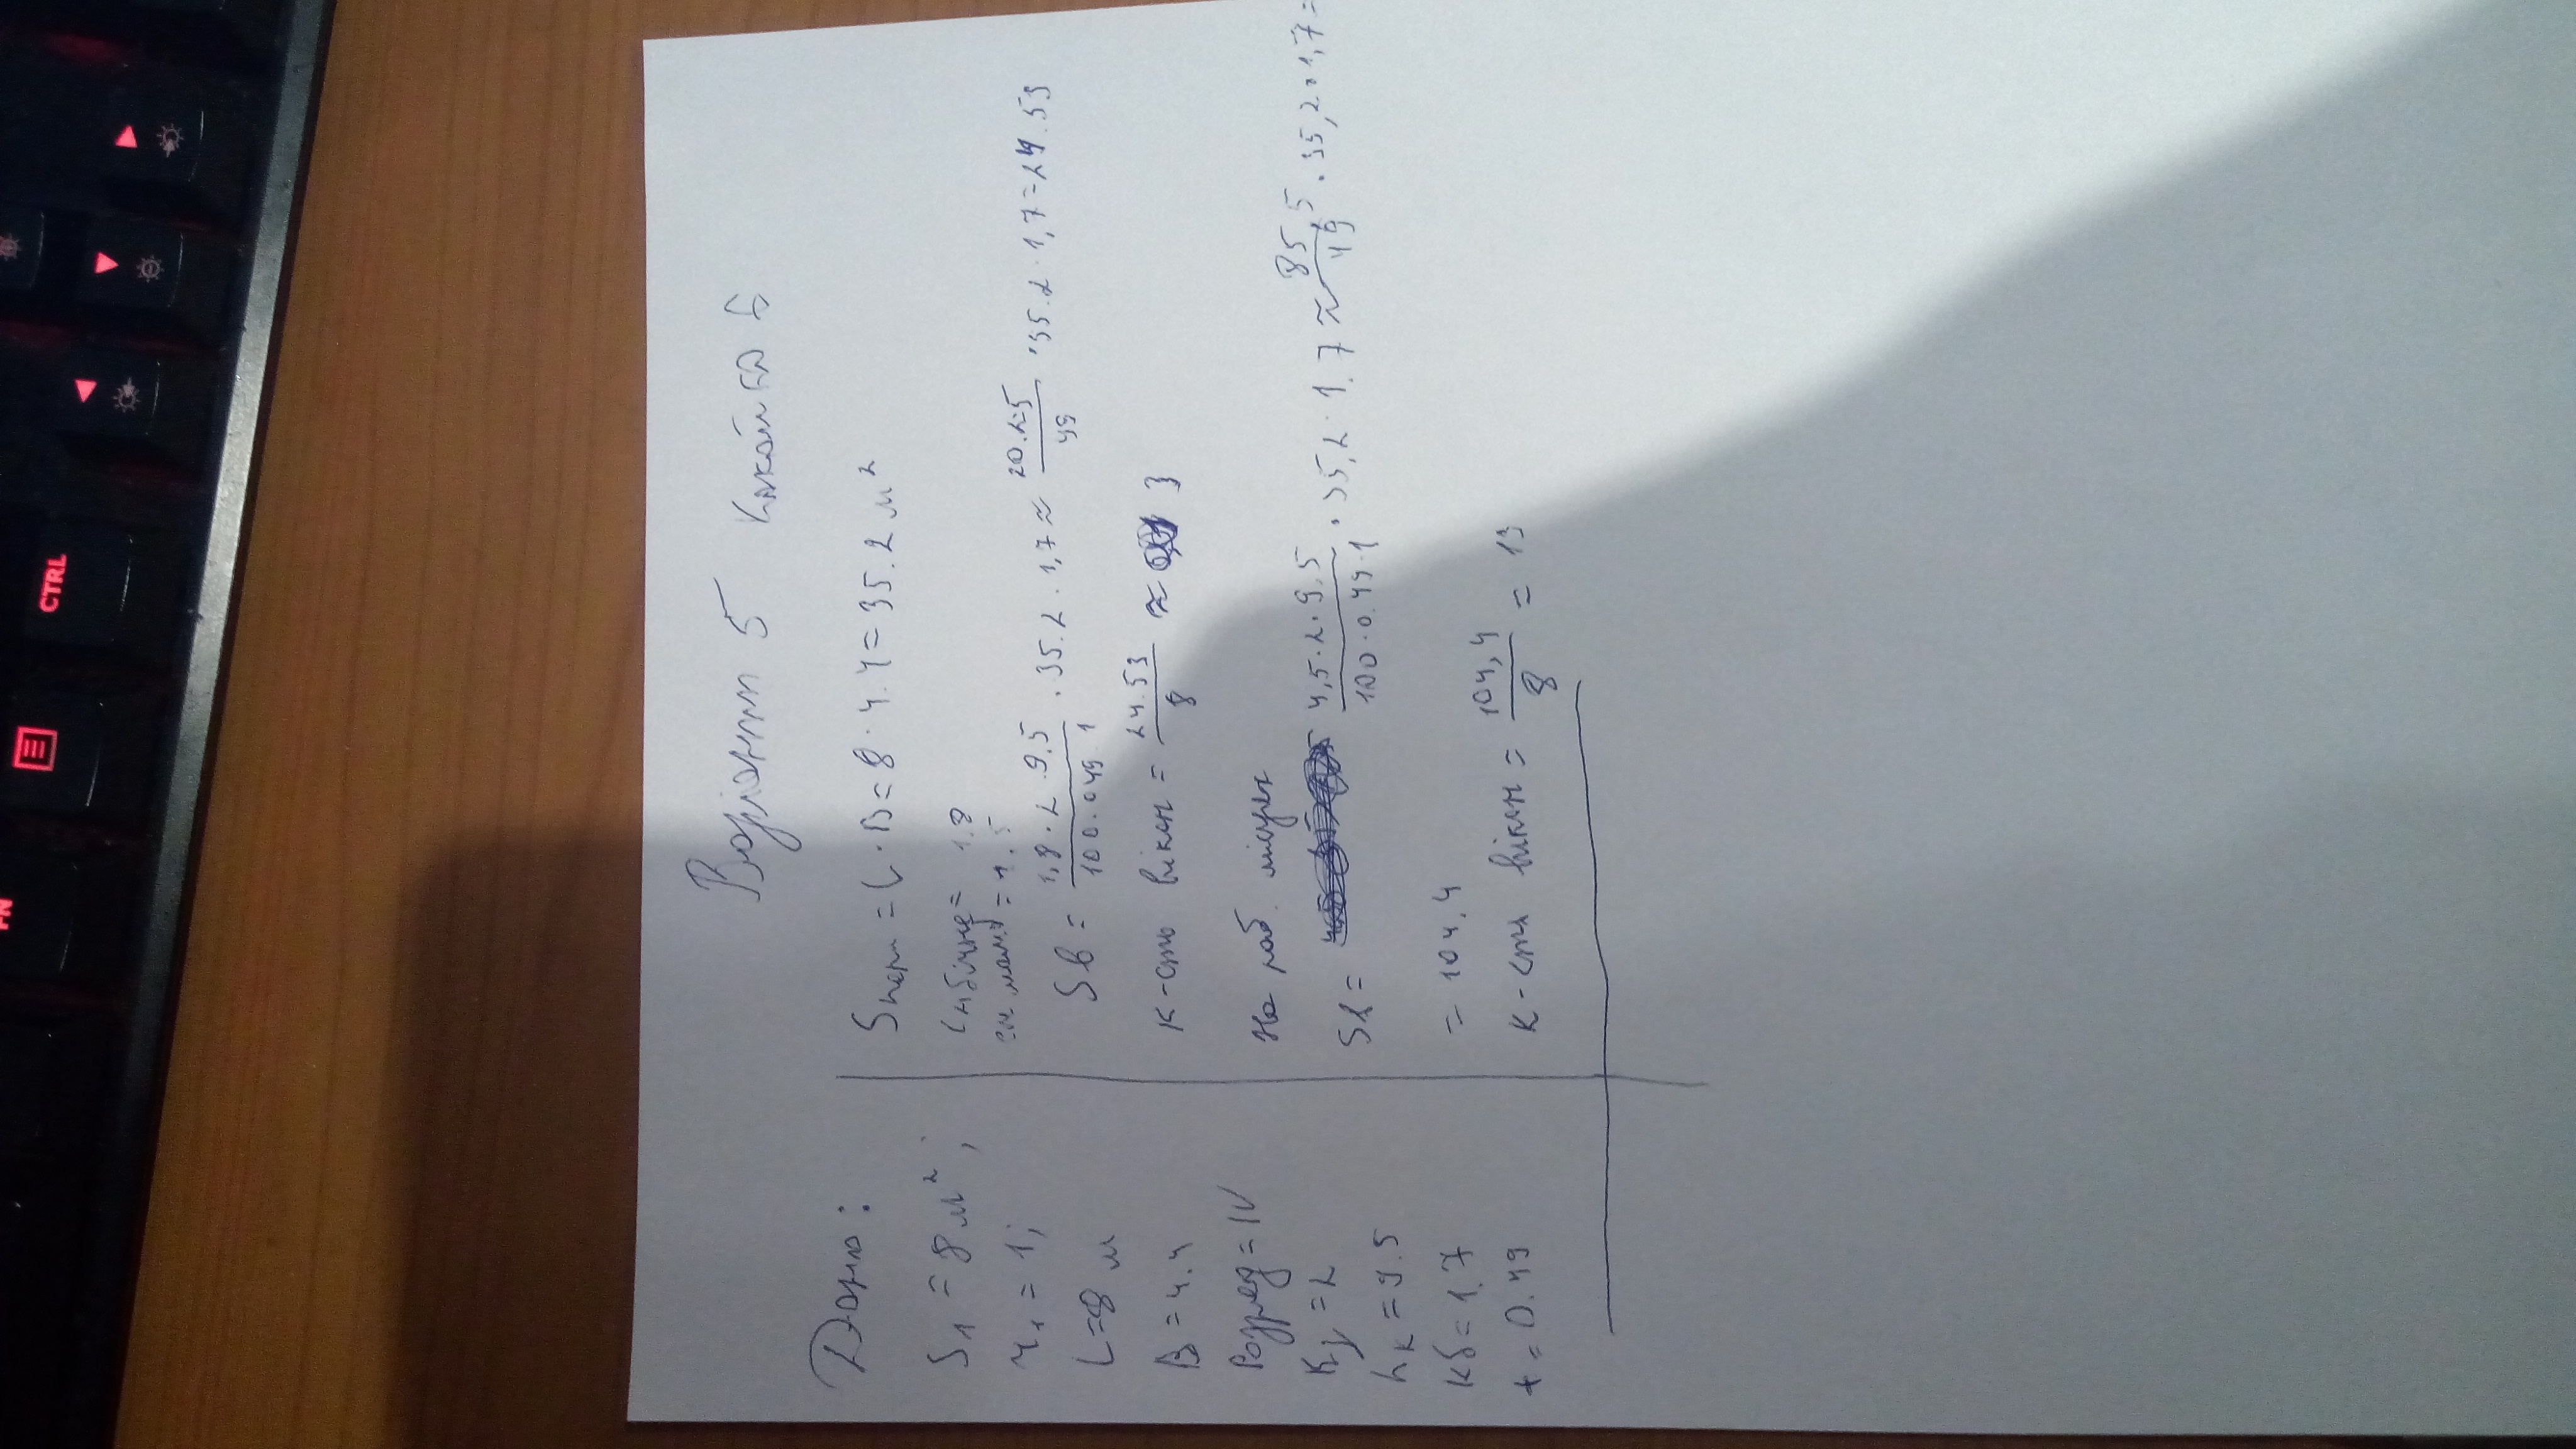 Варіант 5
Дано:
S₁ = 8 м²;
r₁ = 1;
L=8 м
B = 4.4
Розряд = IV
= 2
hк = 9.5
Kб = 1.7
= 0.49
Sпот = L · B = 8 · 4.4 = 35.2 м²
= 1.8
= 4.5
Sв = 1,8 · 2 . 9.5 / 100 . 0.49 . 1 . 35.2 . 1,7 ≈ 20.25 / 49 · 35.2 · 1,7 = 24.53
К-сть вікон = 24.53 / 8 ≈ 3
На роб місцях
4,5 . 2 . 9,5 / 100 . 0.49 . 1 . 35,2 . 1.7 ≈ 85,5 / 49 . 35,2 . 1,7 =
= 104,4
К-сть вікон = 104,4 / 8 = 13
FN
CTRL